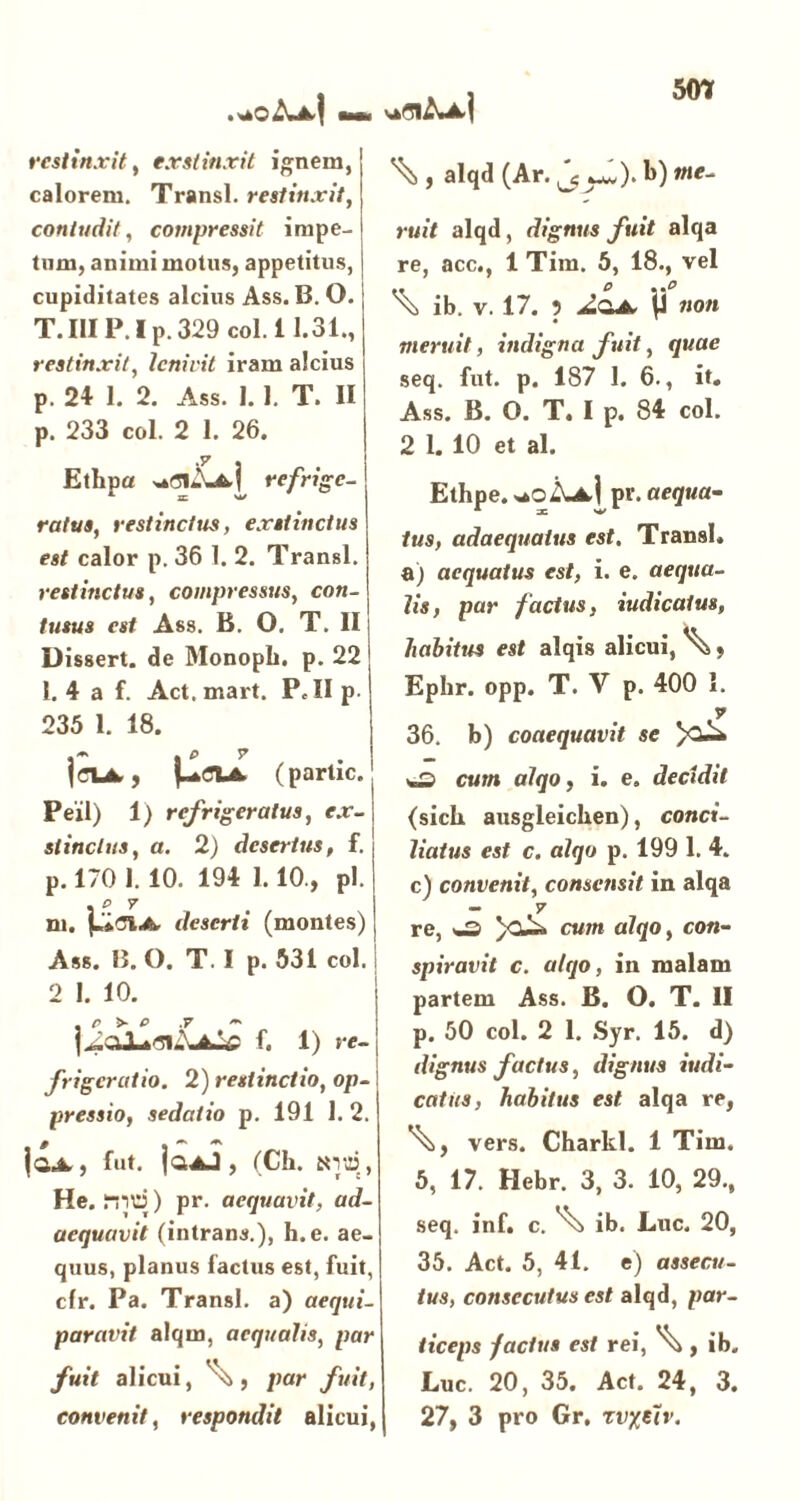 507
ܐܫܬܗܝ — ܐܫܬܘܝ.
restinxit, exstinxit ignem,
calorem. Transl. restinxit,
contudit, compressit impe-
tum, animi motus, appetitus,
cupiditates alcius Ass. B. O.
T. III P. I p. 329 col. 1 l. 31.,
restinxit, lenivit iram alcius
p. 24 l. 2. Ass. l. l. T. II
p. 233 col. 2 l. 26.
Ethpa ܐܫܬܗܝ refrige-
ratus, restinctus, exstinctus
est calor p. 36 l. 2. Transl.
restinctus, compressus, con-
tusus est Ass. B. O. T. II
Dissert. de Monoph. p. 22
l. 4 a f. Act. mart. P. II p.
235 l. 18.
ܫܗܐ, ܫܗܝܐ (partic.
Peïl) 1) refrigeratus, ex-
stinctus, a. 2) desertus, f.
p. 170 l. 10. 194 l. 10., pl.
m. ܫܗܝ̈ܐ deserti (montes)
Ass. B. O. T. I p. 531 col.
2 l. 10.
ܡܫܬܗܝܢܘܬܐ f. 1) re-
frigeratio. 2) restinctio, op-
pressio, sedatio p. 191 l. 2.
ܫܘܐ, fut. ܢܫܘܐ, (Ch. שְׁוָא,
He. שָׁוָה) pr. aequavit, ad-
aequavit (intrans.), h. e. ae-
quus, planus factus est, fuit,
cfr. Pa. Transl. a) aequi-
paravit alqm, aequalis, par
fuit alicui, ܠ, par fuit,
convenit, respondit alicui,
ܠ, alqd (Ar. سوى). b) me-
ruit alqd, dignus fuit alqa
re, acc., 1 Tim. 5, 18., vel
ܠ ib. v. 17. ܠܐ ܫܘܬ ܕ non
meruit, indigna fuit, quae
seq. fut. p. 187 l. 6., it.
Ass. B. O. T. I p. 84 col.
2 l. 10 et al.
Ethpe. ܐܫܬܘܝ pr. aequa-
tus, adaequatus est. Transl.
a) aequatus est, i. e. aequa-
lis, par factus, iudicatus,
habitus est alqis alicui, ܠ,
Ephr. opp. T. V p. 400 l.
36. b) coaequavit se ܥܡ
ܒ cum alqo, i. e. decidit
(sich ausgleichen), conci-
liatus est c. alqo p. 199 l. 4.
c) convenit, consensit in alqa
re, ܒ ܥܡ cum alqo, con-
spiravit c. alqo, in malam
partem Ass. B. O. T. II
p. 50 col. 2 l. Syr. 15. d)
dignus factus, dignus iudi-
catus, habitus est alqa re,
ܠ, vers. Charkl. 1 Tim.
5, 17. Hebr. 3, 3. 10, 29.,
seq. inf. c. ܠ ib. Luc. 20,
35. Act. 5, 41. e) assecu-
tus, consecutus est alqd, par-
ticeps factus est rei, ܠ, ib.
Luc. 20, 35. Act. 24, 3.
27, 3 pro Gr. τυχεῖν.